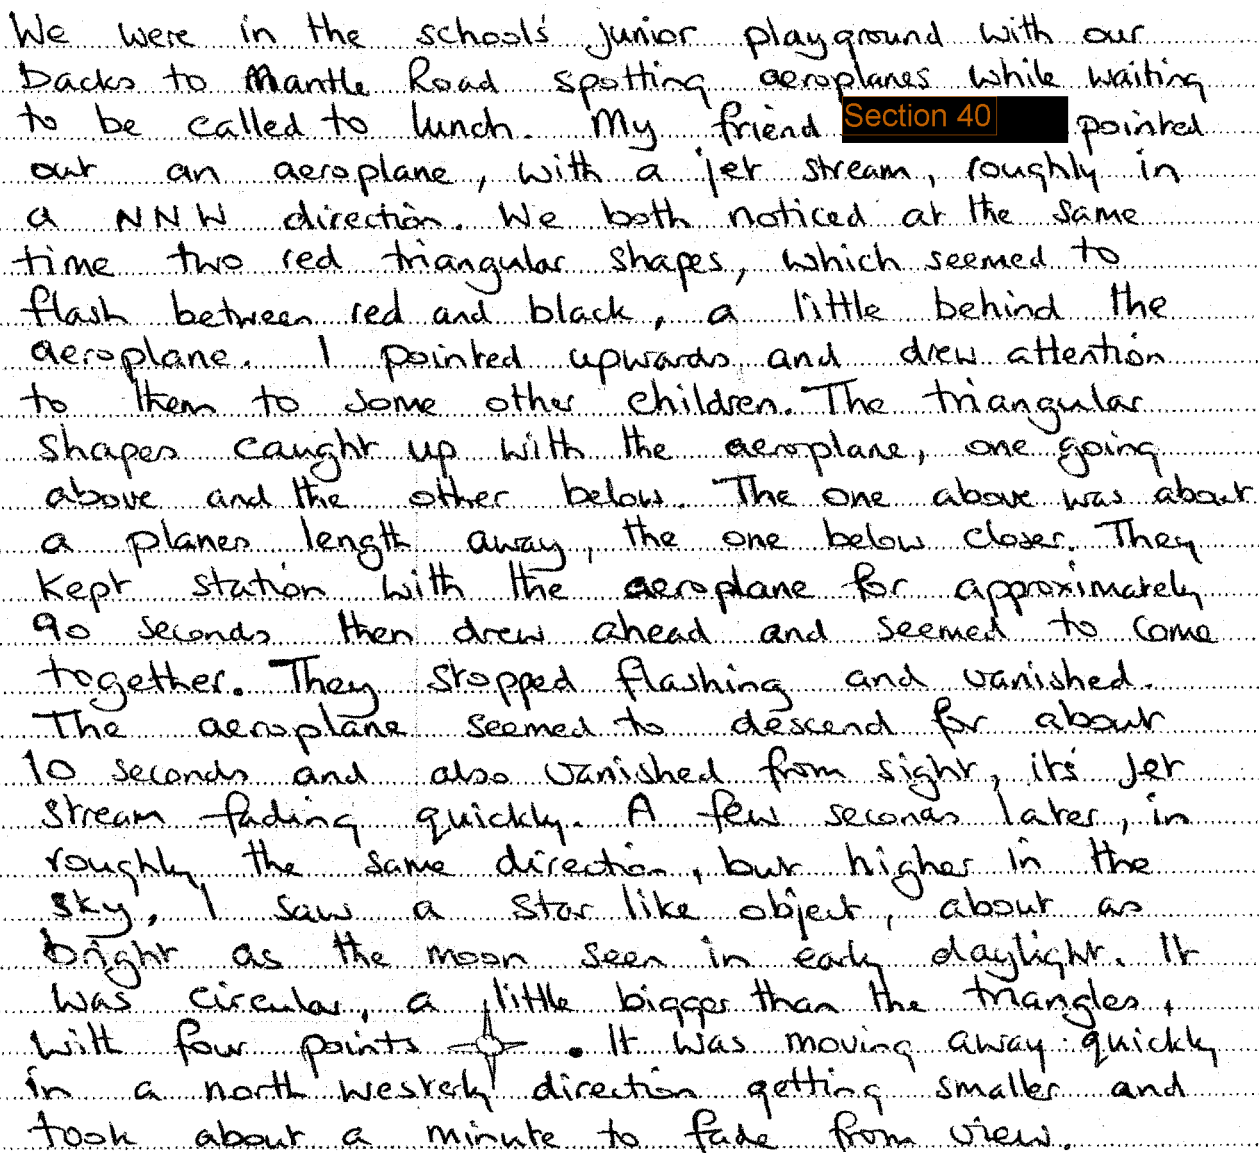 We were in the school's junior playground with our
backs to Mantle Road spotting aeroplanes while waiting
to be called to lunch. My friend Section 40 pointed
out an aeroplane, with a jet stream, roughly in
a NNW direction. We both noticed at the same
time two red triangular shapes, which seemed to
flash between red and black, a little behind the
aeroplane. I pointed upwards and drew attention
to them to some other children. The triangular
shapes caught up with the aeroplane, one going
above and the other below. The one above was about
a planes length away, the one below closer. They
kept station with the aeroplane for approximately
90 seconds then drew ahead and seemed to come
together. They stopped flashing and vanished.
The aeroplane seemed to descend for about
10 seconds and also vanished from sight, it's jet
stream fading quickly. A few seconds later, in
roughly the same direction, but higher in the
sky, I saw a star like object, about as
bright as the moon seen in early daylight. It
was circular, a little bigger than the triangles,
with four points . It was moving away quickly
in a north westerly direction getting smaller and
took about a minute to fade from view.